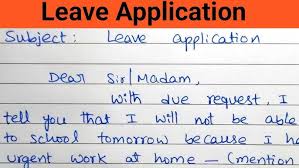 Leave Application
Subject: Leave application
Dear Sir/Madam,
With due request, I
tell you that I will not be able
to school tomorrow because I
urgent work at home – (mention